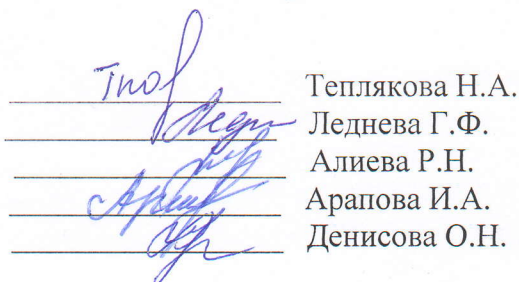 Теплякова Н.А.
Леднева Г.Ф.
Алиева Р.Н.
Арапова И.А.
Денисова О.Н.